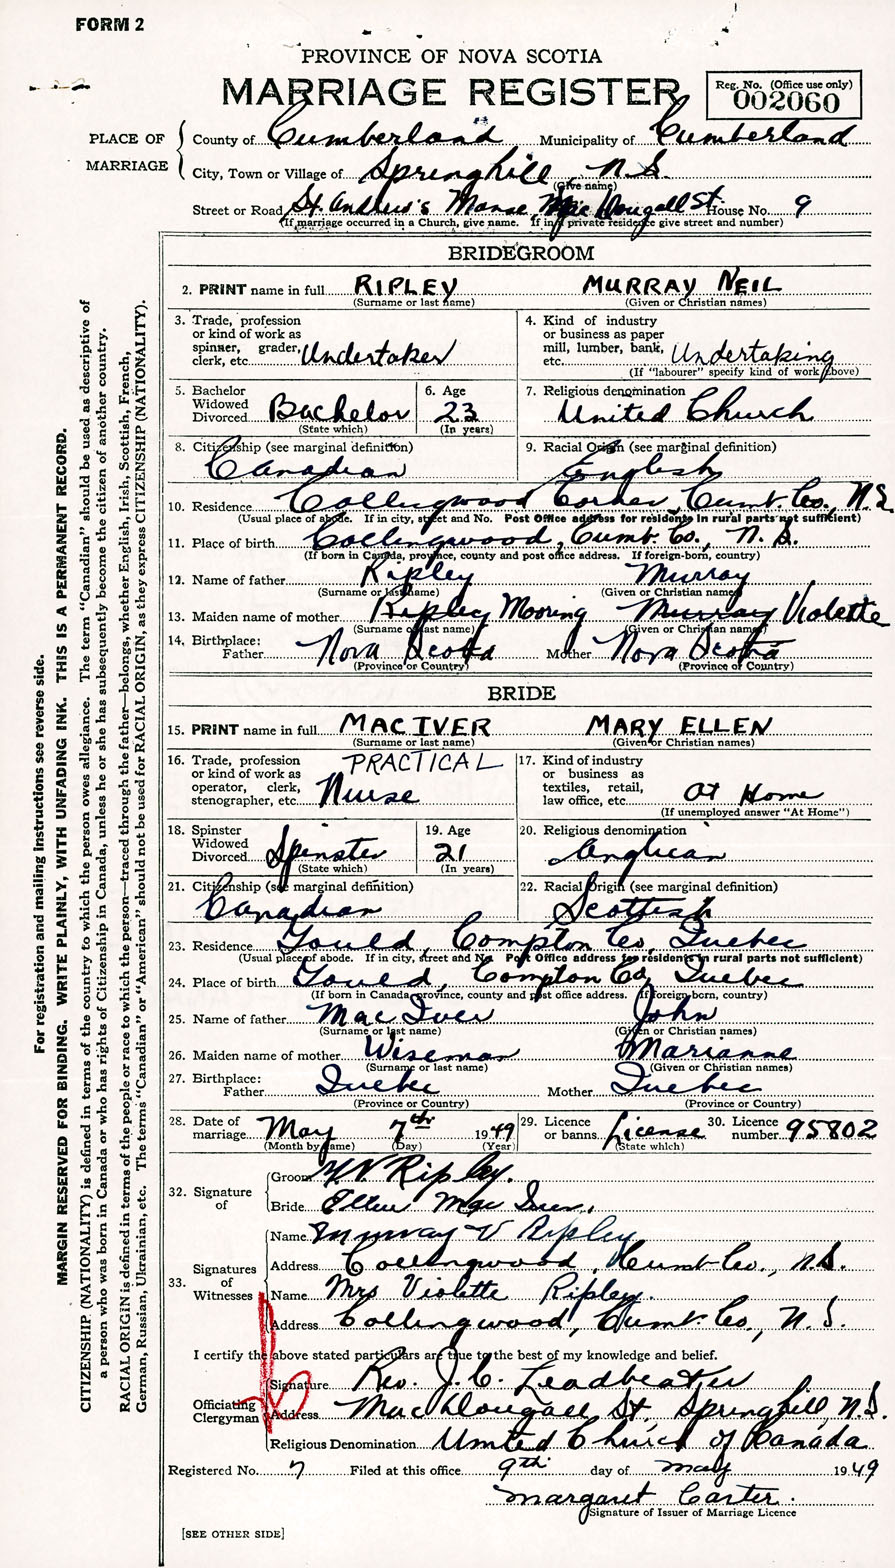 FORM 2
PROVINCE OF NOVA SCOTIA
MARRIAGE REGISTER
Reg. No. (Office use only)
002060
PLACE OF MARRIAGE
County of Cumberland Municipality of Cumberland
City, Town or Village of Springhill, N.S.
(Give name)
Street or Road St. Andrew's Manse MacDougall St. House No. 9
(If marriage occurred in a Church, give name. If in a private residence give street and number)
BRIDEGROOM
2. PRINT name in full RIPLEY MURRAY NEIL
(Surname or last name) (Given or Christian names)
3. Trade, profession or kind of work as spinner, grader, clerk, etc. Undertaker
4. Kind of industry or business as paper mill, lumber, bank, etc. Undertaking
(If "labourer" specify kind of work above)
5. Bachelor Widowed Divorced Bachelor
(State which)
6. Age 23
(In years)
7. Religious denomination United Church
8. Citizenship (see marginal definition) Canadian
9. Racial Origin (see marginal definition) English
10. Residence Collingwood Corner, Cumb. Co., N.S.
(Usual place of abode. If in city, street and No. Post Office address for residents in rural parts not sufficient)
11. Place of birth Collingwood, Cumb. Co., N.S.
(If born in Canada, province, county and post office address. If foreign-born, country)
12. Name of father Ripley Murray
(Surname or last name) (Given or Christian names)
13. Maiden name of mother Ripley Mooring Murray Violette
(Surname or last name) (Given or Christian names)
14. Birthplace: Father Nova Scotia Mother Nova Scotia
(Province or Country) (Province or Country)
BRIDE
15. PRINT name in full MAC IVER MARY ELLEN
(Surname or last name) (Given or Christian names)
16. Trade, profession or kind of work as operator, clerk, stenographer, etc. PRACTICAL Nurse
17. Kind of industry or business as textiles, retail, law office, etc. At Home
(If unemployed answer "At Home")
18. Spinster Widowed Divorced Spinster
(State which)
19. Age 21
(In years)
20. Religious denomination Anglican
21. Citizenship (see marginal definition) Canadian
22. Racial Origin (see marginal definition) Scottish
23. Residence Gould, Compton Co, Quebec
(Usual place of abode. If in city, street and No. Post Office address for residents in rural parts not sufficient)
24. Place of birth Gould, Compton Co, Quebec
(If born in Canada, province, county and post office address. If foreign-born, country)
25. Name of father Mac Iver John
(Surname or last name) (Given or Christian names)
26. Maiden name of mother Wiseman Marianne
(Surname or last name) (Given or Christian names)
27. Birthplace: Father Quebec Mother Quebec
(Province or Country) (Province or Country)
28. Date of marriage May 7th 1949
(Month by name) (Day) (Year)
29. Licence or banns License
(State which)
30. Licence number 95802
32. Signature of
Groom Ripley.
Bride Ellen Mac Iver.
33. Signatures of Witnesses
Name Murray V Ripley
Address Collingwood, Cumb. Co., N.S.
Name Mrs Violette Ripley.
Address Collingwood, Cumb. Co., N.S.
I certify the above stated particulars are true to the best of my knowledge and belief.
Officiating Clergyman
Signature Rev. J. C. Leadbeater
Address MacDougall St. Springhill N.S.
Religious Denomination United Church of Canada
Registered No. 7 Filed at this office 9th day of May 1949
Margaret Carter.
Signature of Issuer of Marriage Licence
[SEE OTHER SIDE]
For registration and mailing instructions see reverse side.
MARGIN RESERVED FOR BINDING. WRITE PLAINLY, WITH UNFADING INK. THIS IS A PERMANENT RECORD.
CITIZENSHIP (NATIONALITY) is defined in terms of the country to which the person owes allegiance. The term "Canadian" should be used as descriptive of
a person who was born in Canada or who has rights of Citizenship in Canada, unless he or she has subsequently become the citizen of another country.
RACIAL ORIGIN is defined in terms of the people or race to which the person—traced through the father—belongs, whether English, Irish, Scottish, French,
German, Russian, Ukrainian, etc. The terms "Canadian" or "American" should not be used for RACIAL ORIGIN, as they express CITIZENSHIP (NATIONALITY).